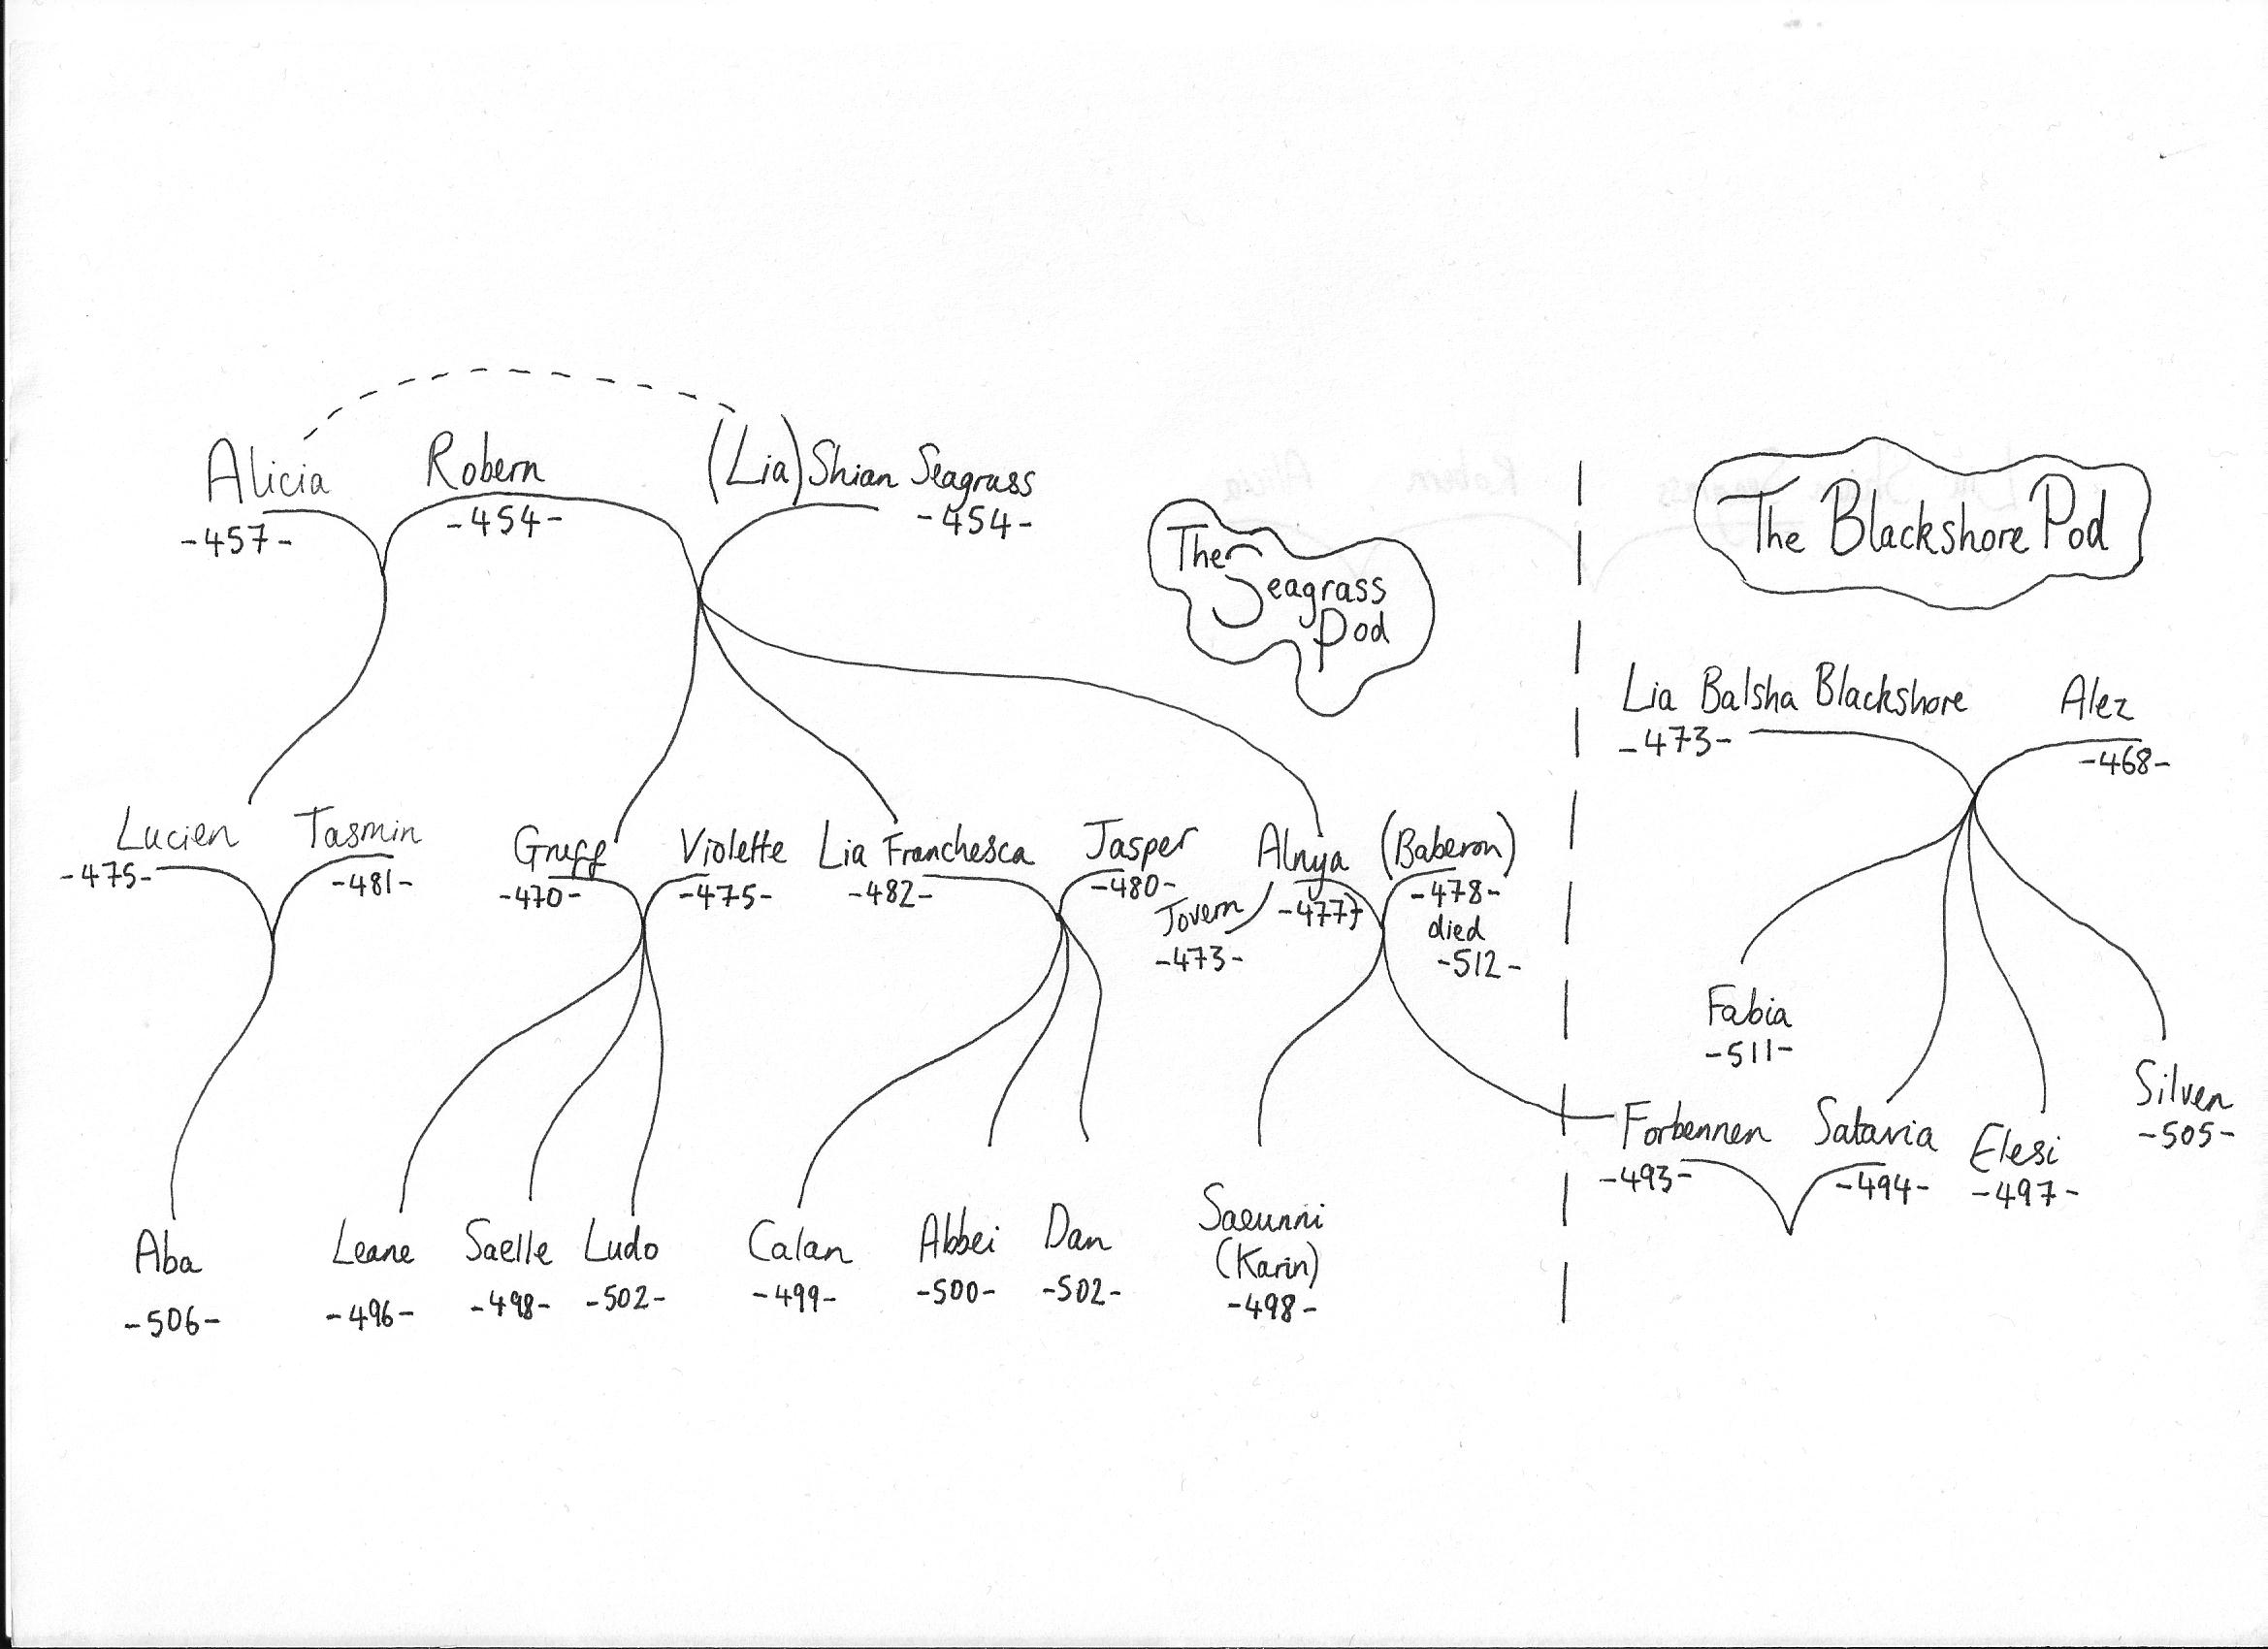 Alicia
-457-
Robern
-454-
(Lia) Shian Seagrass
-454-
The
Seagrass
Pod
The Blackshore Pod
Lia Balsha Blackshore
-473-
Alez
-468-
Lucien
-475-
Tasmin
-481-
Gruff
-470-
Violette
-475-
Lia Franchesca
-482-
Jasper
-480-
Jovern
-473-
Alnya
-477-
(Baberon)
-478-
died
-512-
Fabia
-511-
Forbennen
-493-
Satavia
-494-
Elesi
-497-
Silven
-505-
Aba
-506-
Leane
-496-
Saelle
-498-
Ludo
-502-
Calan
-499-
Abbei
-500-
Dan
-502-
Saeunni
(Karin)
-498-